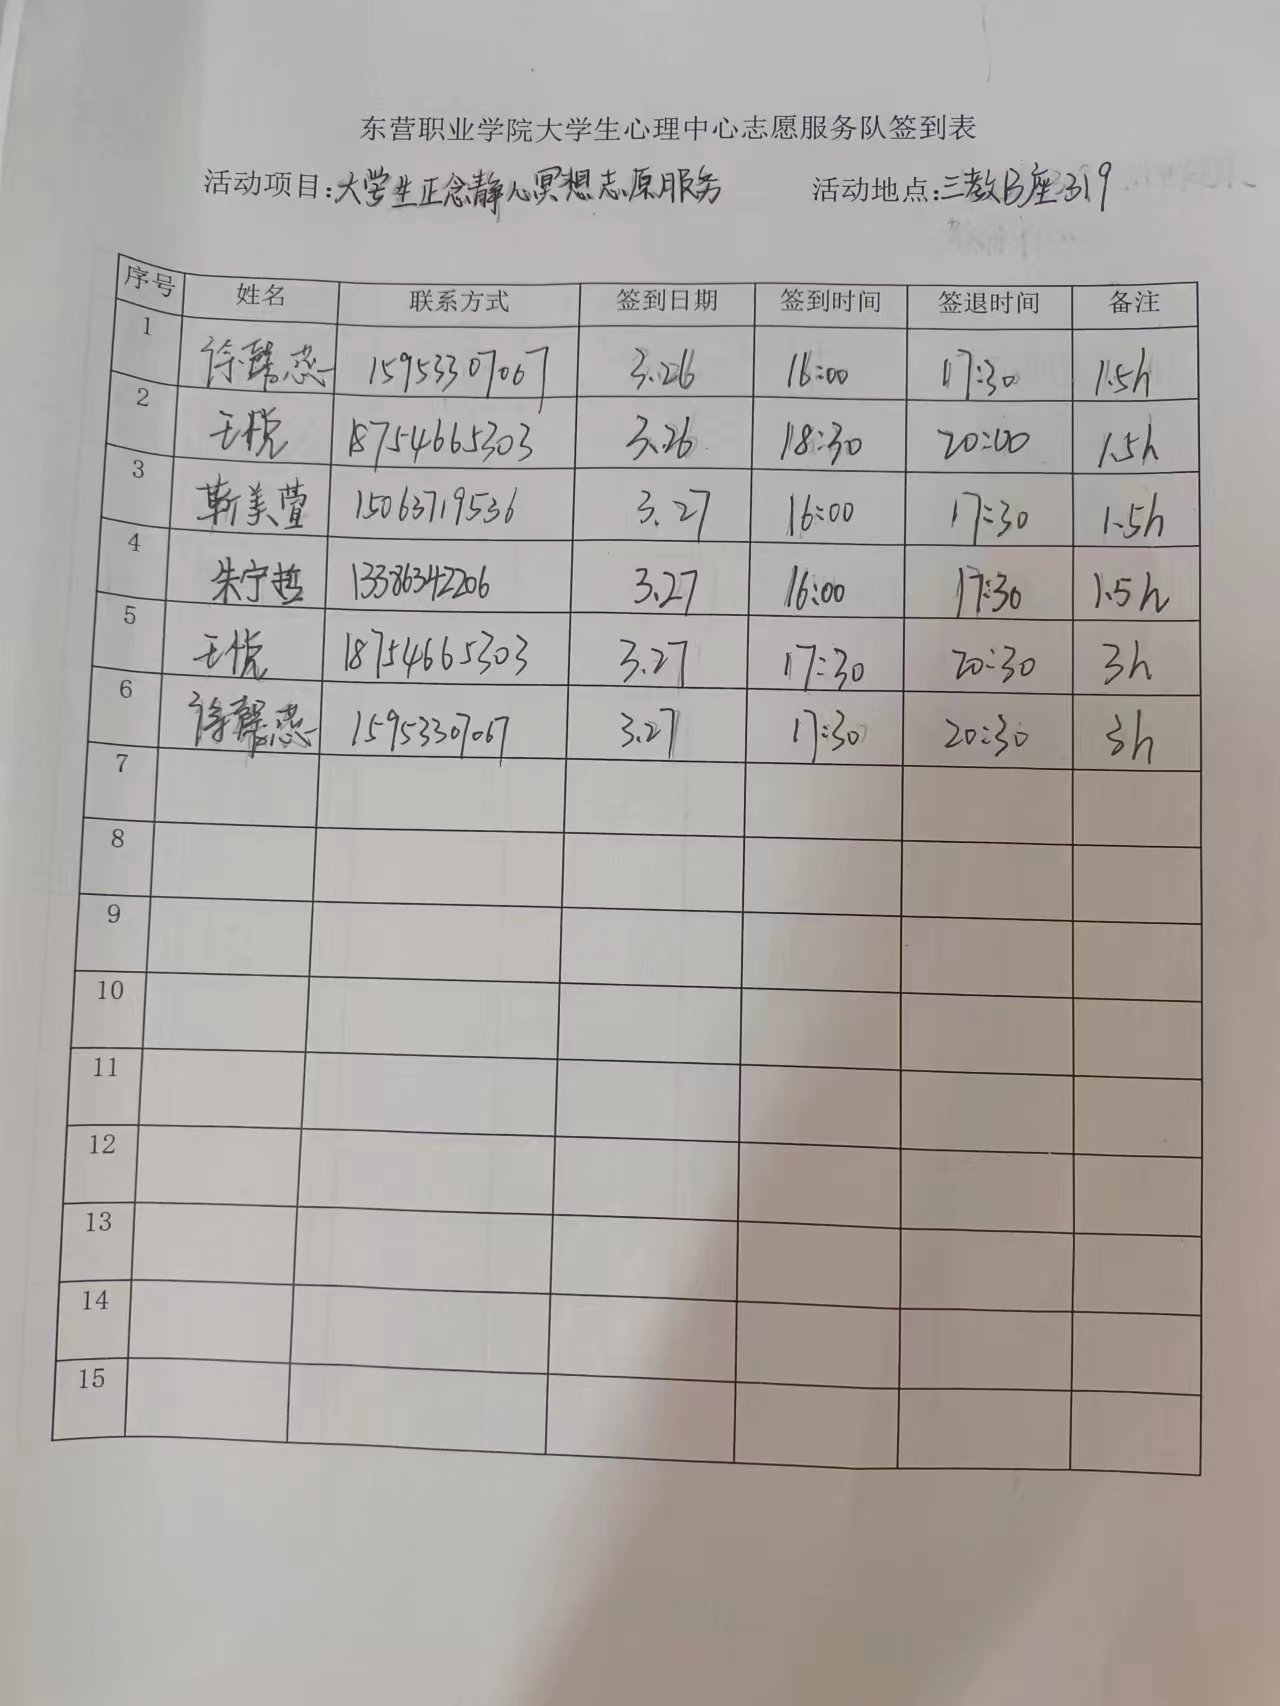 东营职业学院大学生心理中心志愿服务队签到表
活动项目:大学生正念静心冥想志原服务 活动地点:三教B座319
序号 姓名 联系方式 签到日期 签到时间 签退时间 备注
1 徐馨蕊 15953307067 3.26 16:00 17:30 1.5h
2 王悦 18754665303 3.26 18:30 20:00 1.5h
3 靳美萱 15063719536 3.27 16:00 17:30 1.5h
4 朱宁哲 13386342206 3.27 16:00 17:30 1.5h
5 王悦 18754665303 3.27 17:30 20:30 3h
6 徐馨蕊 15953307067 3.27 17:30 20:30 3h
7
8
9
10
11
12
13
14
15